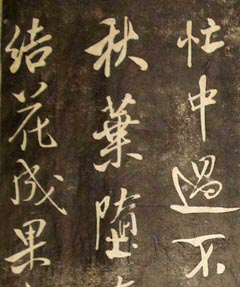 忙中過不
秋葉墮
結花成果